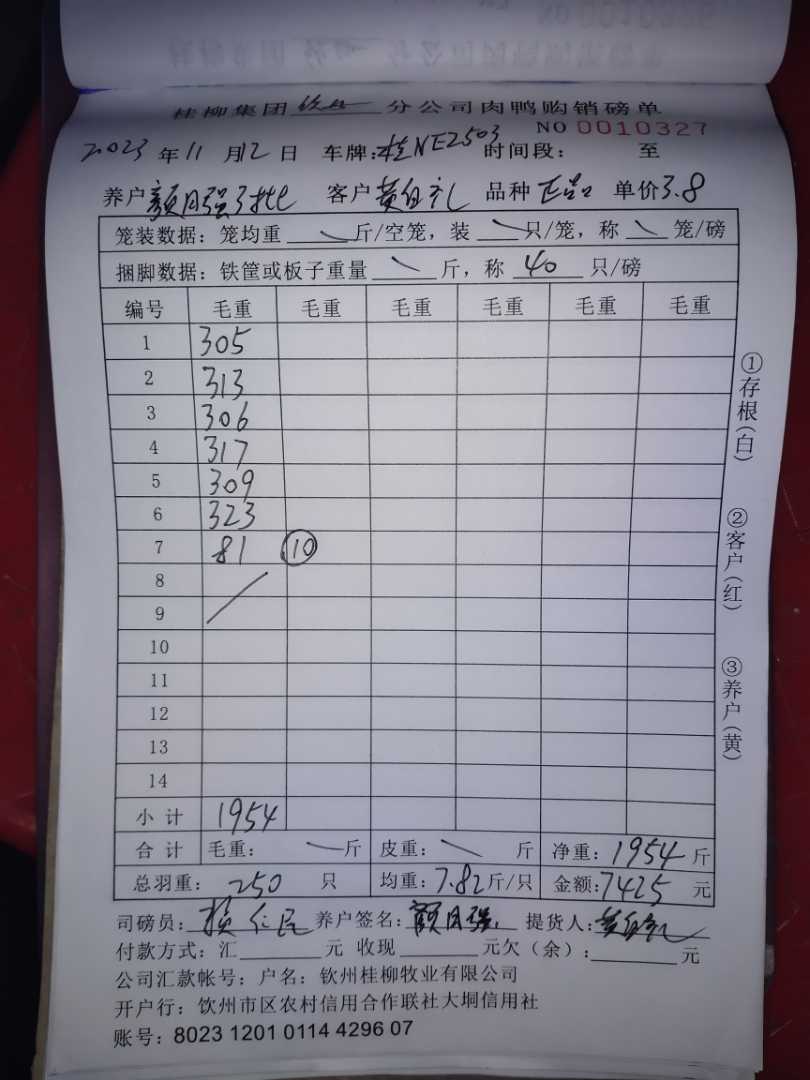 桂柳集团钦州分公司肉鸭购销磅单
NO 0010327
2023年11月12日 车牌:桂NE2503 时间段: 至
养户颜月强3批 客户黄自礼 品种正品 单价3.8
笼装数据:笼均重 \ 斤/空笼,装 \ 只/笼,称 \ 笼/磅
捆脚数据:铁筐或板子重量 \ 斤,称 40 只/磅
编号 毛重 毛重 毛重 毛重 毛重 毛重
1 305
2 313
3 306
4 317
5 309
6 323
7 81 ⑩
8
9
10
11
12
13
14
小计 1954
合计 毛重: \ 斤 皮重: \ 斤 净重:1954斤
总羽重:250 只 均重:7.82斤/只 金额:7425元
司磅员: 养户签名:颜月强 提货人:黄自礼
付款方式:汇 元 收现 元欠(余): 元
公司汇款帐号:户名:钦州桂柳牧业有限公司
开户行:钦州市区农村信用合作联社大垌信用社
账号:8023 1201 0114 4296 07
①存根(白)
②客户(红)
③养户(黄)